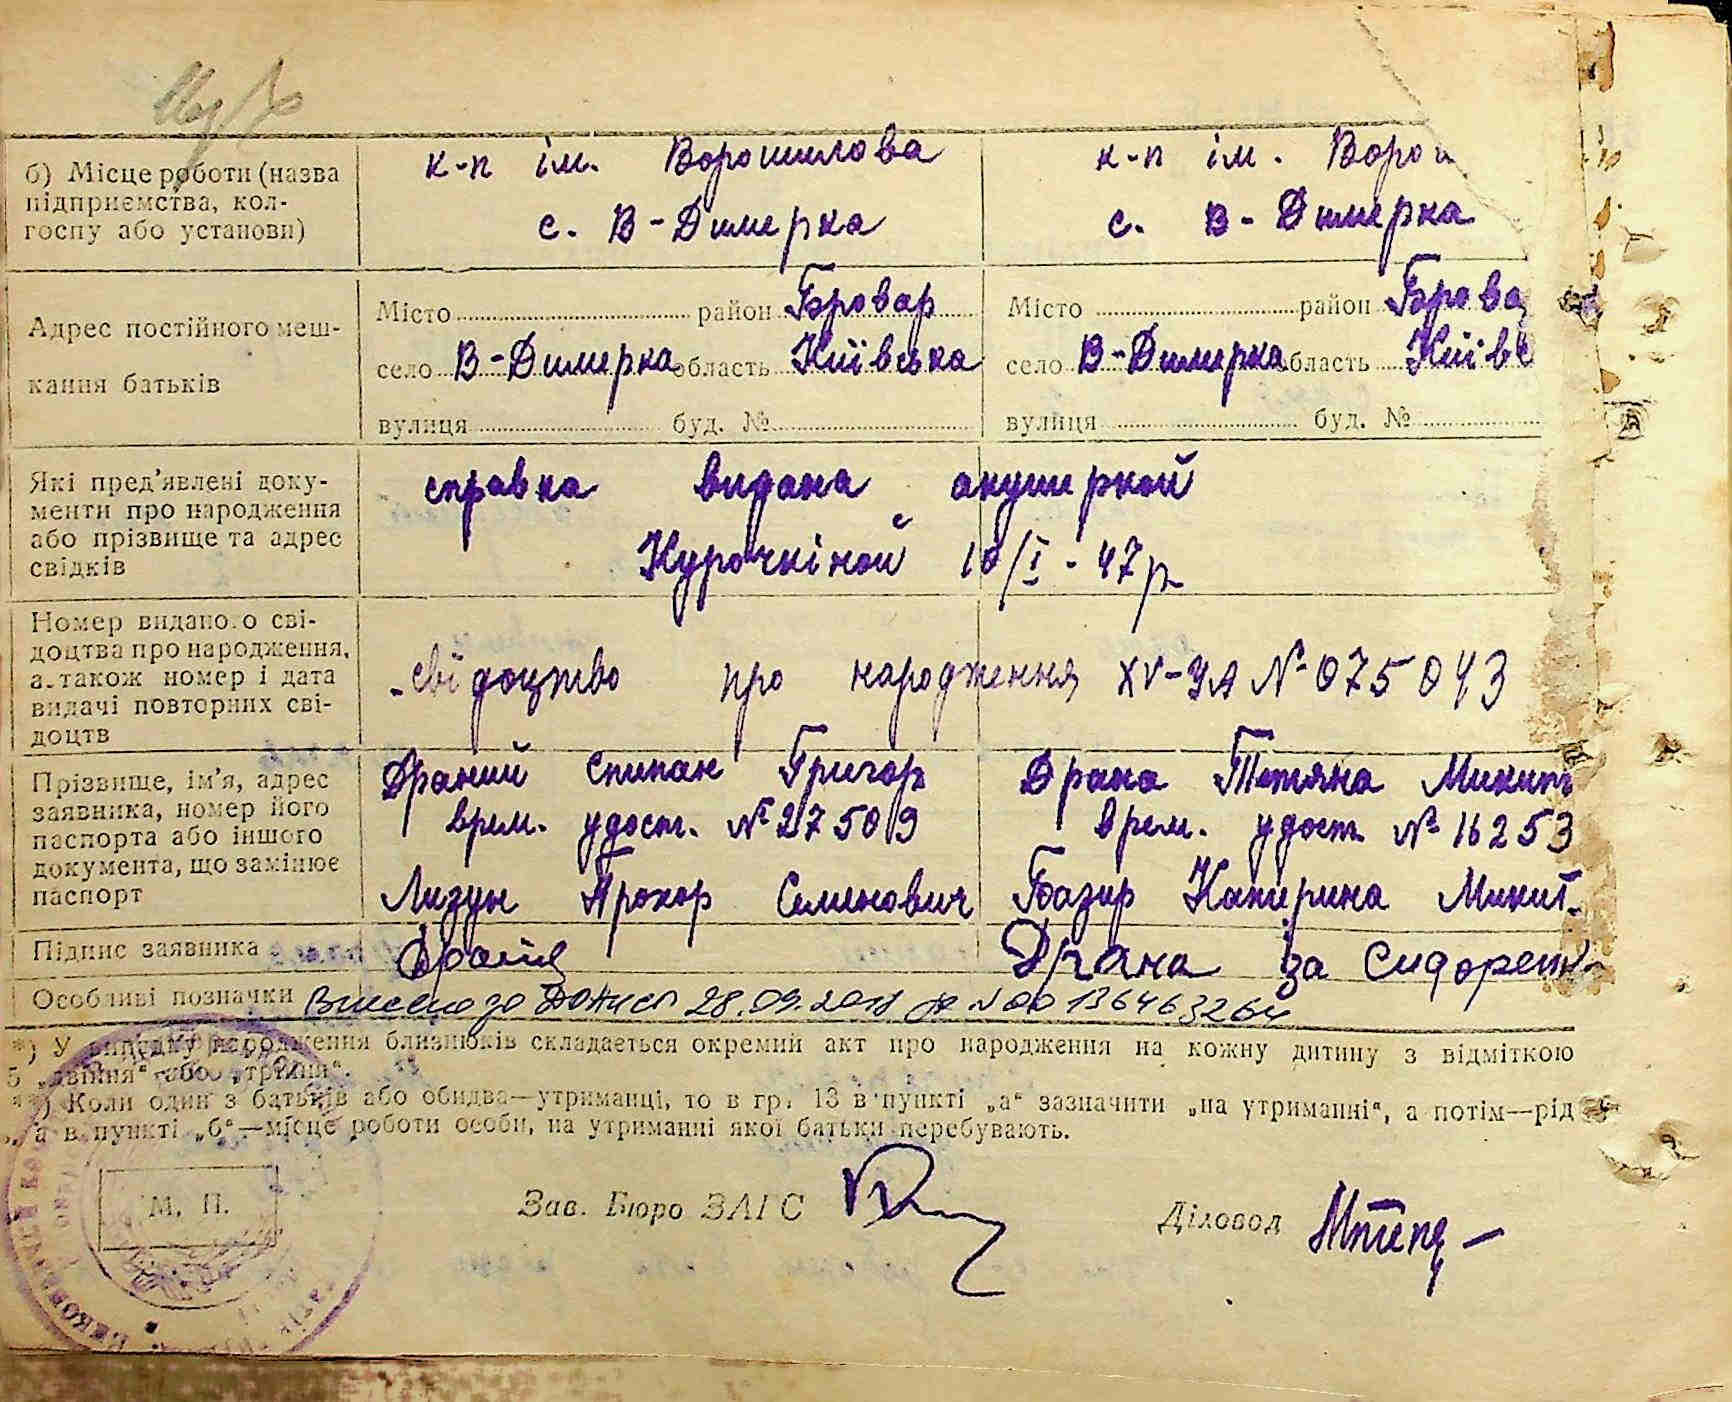 б) Місце роботи (назва підприємства, колгоспу або установи)
к-п ім. Ворошилова
с. В-Димерка
к-п ім. Ворош
с. В-Димерка
Адрес постійного мешкання батьків
Місто район Бровар
село В-Димерка область Київська
вулиця буд. №
Місто район Брова
село В-Димерка область Київс
вулиця буд. №
Які пред'явлені документи про народження або прізвище та адрес свідків
справка видана акушеркой
Курочкіной 10/I-47р
Номер видано.о свідоцтва про народження, а також номер і дата видачі повторних свідоцтв
свідоцтво про народження XV-УА № 075043
Прізвище, ім'я, адрес заявника, номер його паспорта або іншого документа, що замінює паспорт
Драний Степан Григор
врем. удост. № 27509
Лизун Прохор Семенович
Драна Тетяна Микит
врем. удост. № 16253
Базир Катерина Микит.
Підпис заявника
Драна за Сидорен
Особливі позначки
28.09.2018 № 00136463264
*) У випадку народження близнюків складається окремий акт про народження на кожну дитину з відміткою
„двійня“ або „трійня“.
**) Коли один з батьків або обидва—утриманці, то в гр. 13 в пункті „а“ зазначити „на утриманні“, а потім—рід
а в пункті „б“—місце роботи особи, на утриманні якої батьки перебувають.
М. П.
Зав. Бюро ЗАГС
Діловод